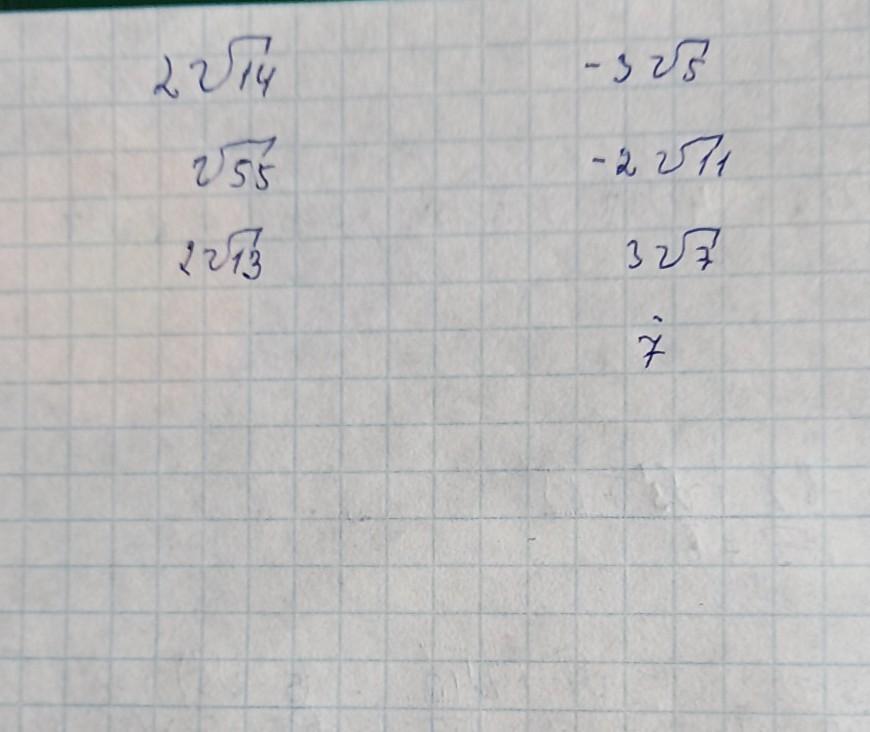 2√14 -3√5
√55 -2√11
2√13 3√7
7